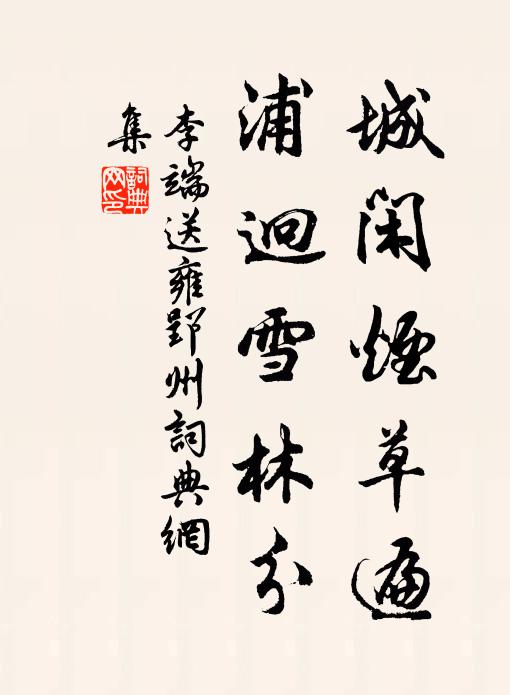 城閑煙草遍
浦迴雪林分
李端送雍郢州詞典網
集
詞典
网印